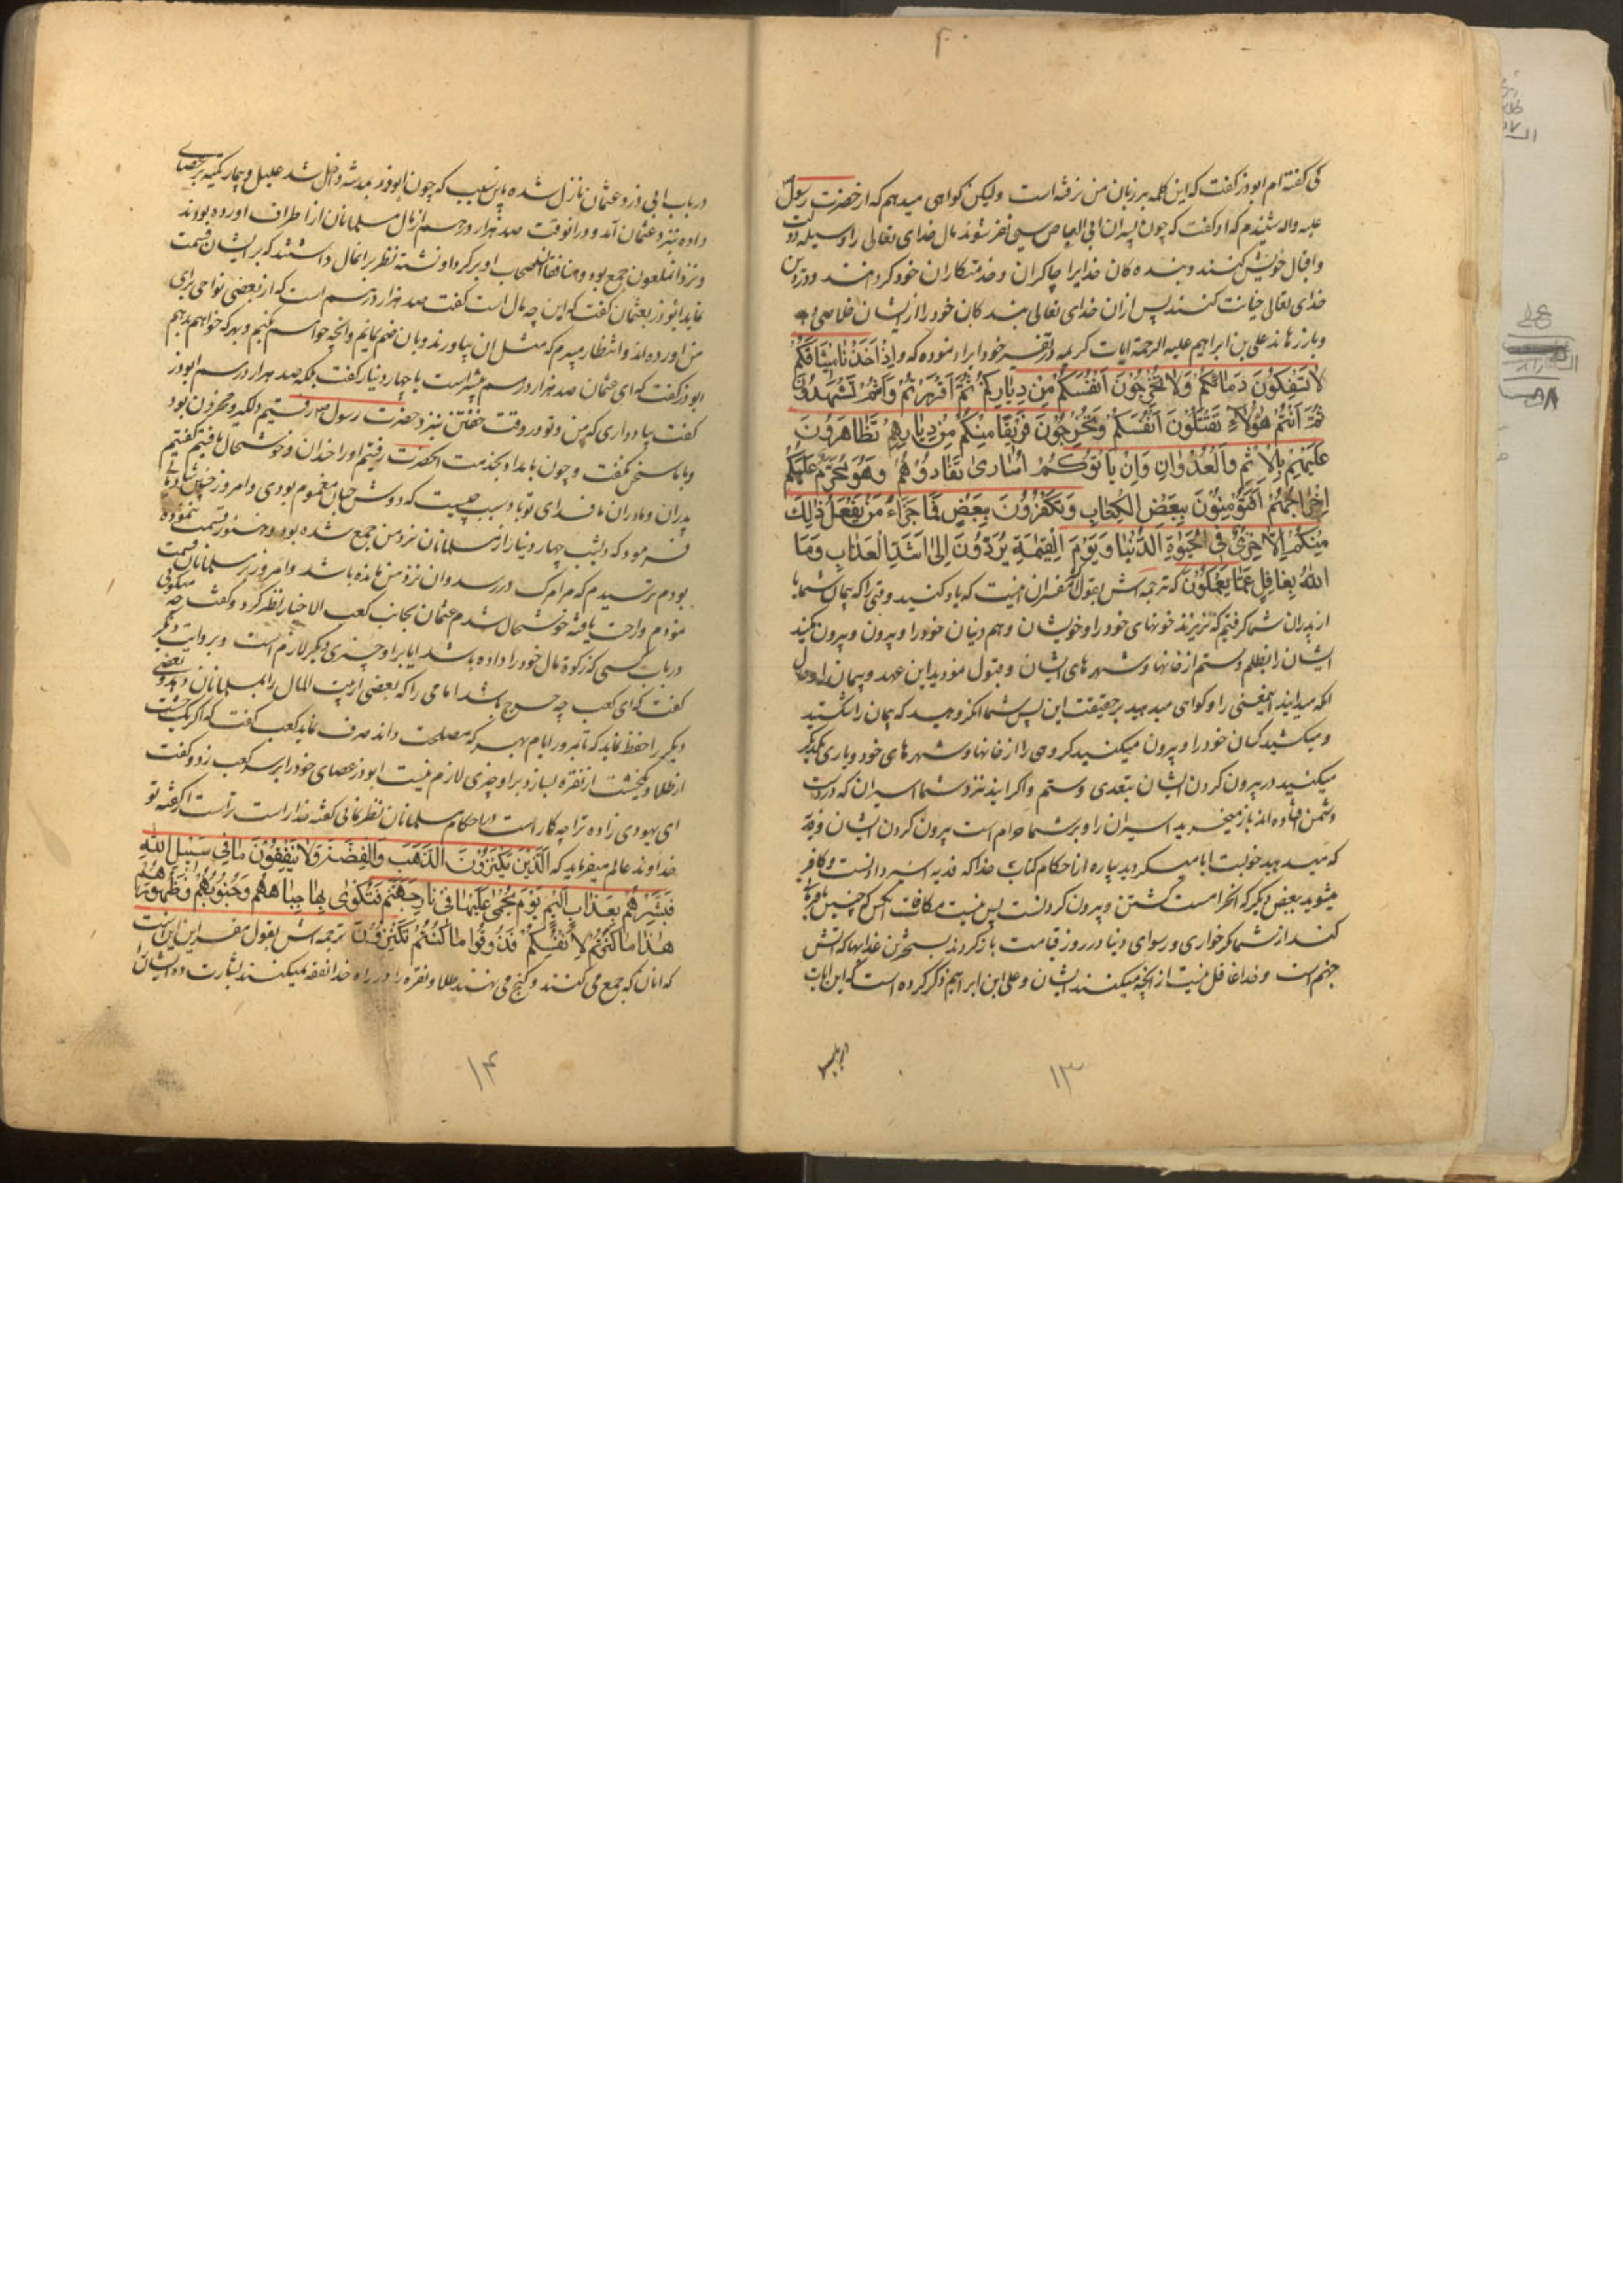 ۴۰
کی گفته ام ابوذر گفت که این کلمه بر زبان من نرفته است ولیکن کواهی میدهم که از حضرت رسول ص
علیه واله شنیدم که او گفت که چون پسران ابی العاص سی نفر شوند مال خدای تعالی را وسیله دولت
واقبال خویش کنند و بنده کان خدایرا چاکران و خدمتکاران خود کردانند و در دین
خدای تعالی خیانت کنند پس از ان خدای تعالی بنده کان خود را از ایشان خلاصی دهد
و باز رهاند علی بن ابراهیم علیه الرحمة ایات کریمه در تفسیر خود ایراد نموده که وَاِذْ اَخَذْنٰا مِیثٰاقَکُمْ
لاٰ تَسْفِکُونَ دِمٰائَکُمْ وَلاٰ تُخْرِجُونَ اَنْفُسَکُمْ مِنْ دِیٰارِکُمْ ثُمَّ اَقْرَرْتُمْ وَاَنْتُمْ تَشْهَدُونَ
ثُمَّ اَنْتُمْ هٰؤُلاٰءِ تَقْتُلُونَ اَنْفُسَکُمْ وَتُخْرِجُونَ فَرِیقًا مِنْکُمْ مِنْ دِیٰارِهِمْ تَظٰاهَرُونَ
عَلَیْهِمْ بِالْاِثْمِ وَالْعُدْوٰانِ وَاِنْ یَأْتُوکُمْ اُسٰاریٰ تُفٰادُوهُمْ وَهُوَ مُحَرَّمٌ عَلَیْکُمْ
اِخْرٰاجُهُمْ اَفَتُؤْمِنُونَ بِبَعْضِ الْکِتٰابِ وَتَکْفُرُونَ بِبَعْضٍ فَمٰا جَزٰاءُ مَنْ یَفْعَلُ ذٰلِکَ
مِنْکُمْ اِلاّٰ خِزْیٌ فِی الْحَیٰوةِ الدُّنْیٰا وَیَوْمَ الْقِیٰمَةِ یُرَدُّونَ اِلیٰ اَشَدِّ الْعَذٰابِ وَمَا
اللّٰهُ بِغٰافِلٍ عَمّٰا یَعْمَلُونَ که ترجمه اش بقول مفسران اینست که یاد کنید وقتی را که پیمان شما با
از پدران شما کرفتیم که نریزند خونهای خود را و خویشان و هم دینان خود را و بیرون نکنید
ایشان را بظلم و ستم از خانها و شهرهای ایشان و قبول نمودید این عهد و پیمان را و حال
انکه میدانید اینمعنی را و کواهی میدهید بر حقیقت این پس شما انکروهید که پیمان را شکستید
و میکشید کسان خود را و بیرون میکنید کروهی را از خانها و شهرهای خود و یاری یکدیکر
میکنید در بیرون کردن ایشان بتعدی و ستم و اکر ایند نزد شما اسیران که در دست
دشمن افتاده اند باز میخرید اسیران را و بر شما حرام است بیرون کردن ایشان و فدیه
که میدهید خوبست ایا میکروید بپاره از احکام کتاب خدا که فدیه اسیر دادنست و کافر
میشوید ببعض دیکر که انحرامست کشتن و بیرون کردنست پس نیست مکافات انکس که چنین
کند از شما مکر خواری و رسوای دنیا در روز قیامت باز کردند بسخترین عذابها که اتش
جهنم است و خدا غافل نیست از انچه میکنند ایشان و علی ابن ابراهیم ذکر کرده است که این ایات
۱۳
در باب ابی ذر و عثمان نازل شده باین سبب که چون ابوذر بمدینه داخل شد علیل و بیمار تکیه بر عصای
داده نزد عثمان آمد و در انوقت صد هزار درهم از مال مسلمانان از اطراف اورده بودند
و نزد انملعون جمع بود و منافقان اصحاب او بر کرد او نشسته نظر بر انمال داشتند که بر ایشان قسمت
نماید ابوذر بعثمان گفت که این چه مال است گفت صد هزار درهم است که از بعضی نواحی برای
من اورده اند و انتظار میبرم که مثل ان بیاورند و بان ضم نمایم و انچه خواسته باشم بکنم و بهر که خواهم بدهم
ابوذر گفت که ای عثمان صد هزار درهم بیشتر است یا چهار دینار گفت بلکه صد هزار درهم ابوذر
گفت بیاد داری که من و تو در وقت خفتن نزد حضرت رسول ص رفتیم دلکیر و محزون بود
و با ما سخن نگفت و چون بامداد بخدمت انحضرت رفتیم او را خندان و خوشحال یافتیم گفتیم
پدران و مادران ما فدای تو باد سبب چیست که دوش چنان مغموم بودی و امروز چنین شاد
فرمود که دیشب چهار دینار از مسلمانان نزد من جمع شده بود و هنوز قسمت ننموده
بودم ترسیدم که مرا مرک در رسد و ان نزد من مانده باشد و امروز بر مسلمانان قسمت
نمودم و راحت یافته خوشحال شدم عثمان بجانب کعب الاخبار نظر کرد و گفت چه میکوئی
در باب کسی که زکوة مال خود را داده باشد ایا بر او چیزی دیکر لازم است و بروایت دیکر
گفت که ای کعب چه حرج باشد امامی را که بعضی از بیت المال را بمسلمانان دهد و بعضی
دیکر را حفظ نماید که تا بمرور ایام بهر که مصلحت داند صرف نماید کعب گفت که اکر یک خشت
از طلا و یکخشت از نقره بسازد بر او چیزی لازم نیست ابوذر عصای خود را بر سر کعب زد و گفت
ای یهودی زاده ترا چه کار است که در احکام مسلمانان نظر نمائی گفته خدا راست تر است از گفته تو
خداوند عالم میفرماید که اَلَّذِینَ یَکْنِزُونَ الذَّهَبَ وَالْفِضَّةَ وَلاٰ یُنْفِقُونَهٰا فِی سَبِیلِ اللّٰهِ
فَبَشِّرْهُمْ بِعَذٰابٍ اَلِیمٍ یَوْمَ یُحْمیٰ عَلَیْهٰا فِی نٰارِ جَهَنَّمَ فَتُکْویٰ بِهٰا جِبٰاهُهُمْ وَجُنُوبُهُمْ وَظُهُورُهُمْ
هٰذٰا مٰا کَنَزْتُمْ لِاَنْفُسِکُمْ فَذُوقُوا مٰا کُنْتُمْ تَکْنِزُونَ ترجمه اش بقول مفسرین این است
که انان که جمع می کنند و کنج می نهند طلا و نقره را و در راه خدا نفقه نمیکنند بشارت ده ایشانرا
۱۴